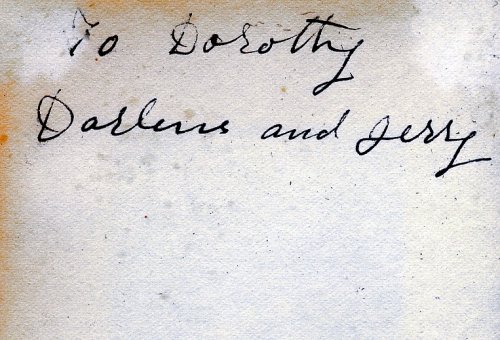 To Dorothy
Darlene and Jerry